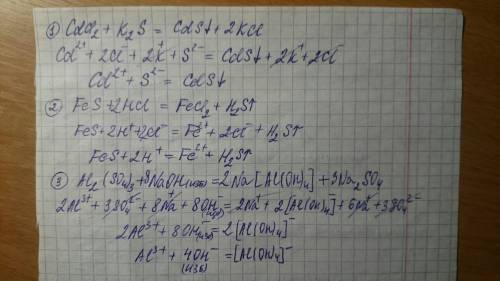 ① CdCl₂ + K₂S = CdS↓ + 2KCl
Cd²⁺ + 2Cl⁻ + 2K⁺ + S²⁻ = CdS↓ + 2K⁺ + 2Cl⁻
Cd²⁺ + S²⁻ = CdS↓
② FeS + 2HCl = FeCl₂ + H₂S↑
FeS + 2H⁺ + 2Cl⁻ = Fe²⁺ + 2Cl⁻ + H₂S↑
FeS + 2H⁺ = Fe²⁺ + H₂S↑
③ Al₂(SO₄)₃ + 8NaOH(изб) = 2Na[Al(OH)₄] + 3Na₂SO₄
2Al³⁺ + 3SO₄²⁻ + 8Na⁺ + 8OH⁻(изб) = 2Na⁺ + 2[Al(OH)₄]⁻ + 6Na⁺ + 3SO₄²⁻
2Al³⁺ + 8OH⁻(изб) = 2[Al(OH)₄]⁻
Al³⁺ + 4OH⁻(изб) = [Al(OH)₄]⁻